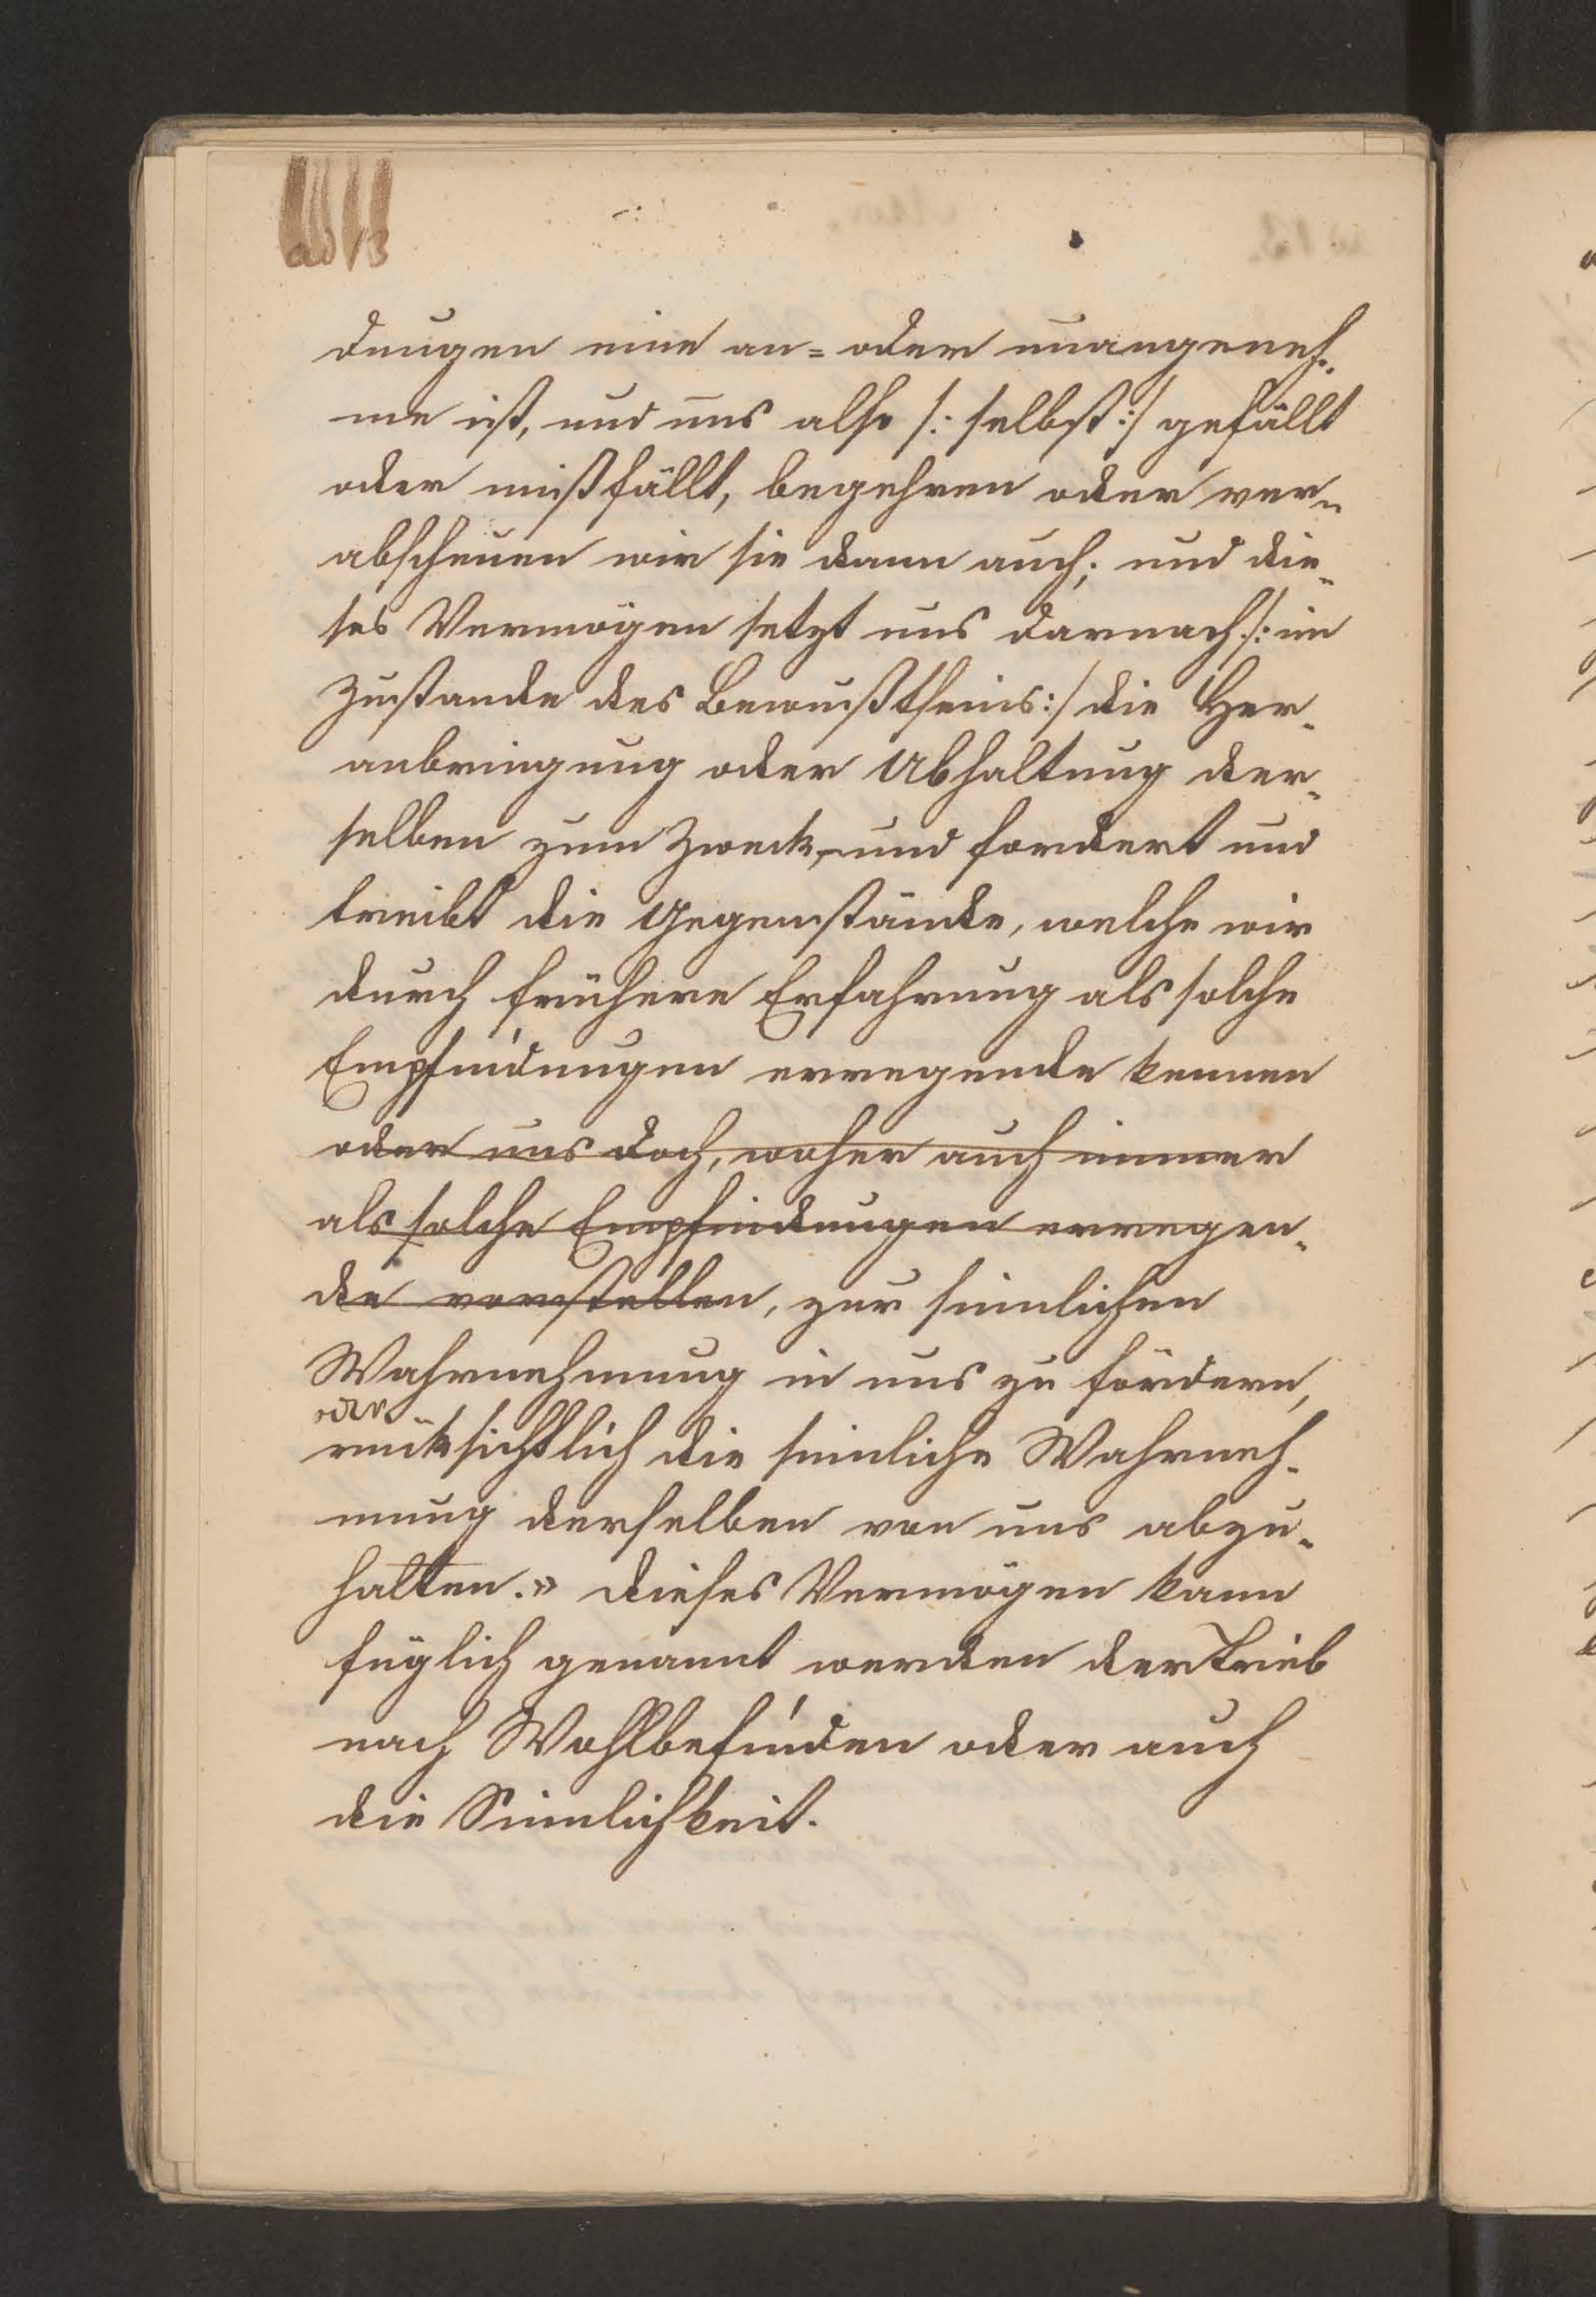 ad 13
dungen eine an= oder unangeneh-
me ist, und uns also /: selbst :/ gefällt
oder mißfällt, begehren oder ver-
abscheuen wir sie dann auch; und die-
ses Vermögen setzt uns darnach /: im
Zustande des Bewußtseins :/ die Her-
anbringung oder Abhaltung der-
selben zum Zweck, und fordert und
treibt die Gegenstände, welche wir
durch frühere Erfahrung als solche
Empfindungen erregende kennen
oder uns doch, woher auch immer
als solche Empfindungen erregen-
de vorstellen, zur sinnlichen
Wahrnehmung in uns zu fördern,
oder
rücksichtlich die sinnliche Wahrneh-
mung derselben von uns abzu-
halten.» Dieses Vermögen kann
füglich genannt werden der Trieb
nach Wohlbefinden oder auch
die Sinnlichkeit.